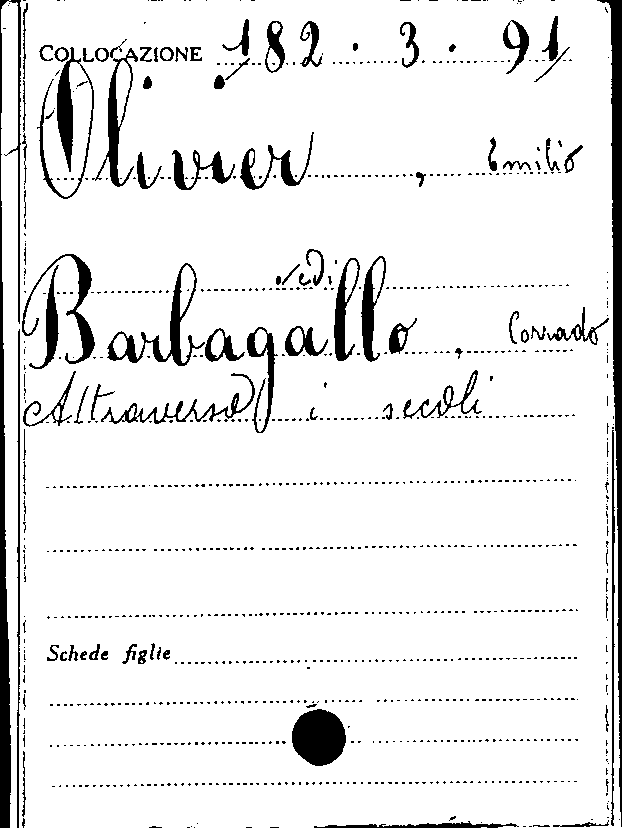 COLLOCAZIONE 182.3.91
Olivier, Emilio
vedi
Barbagallo, Corrado
Attraverso i secoli
Schede figlie